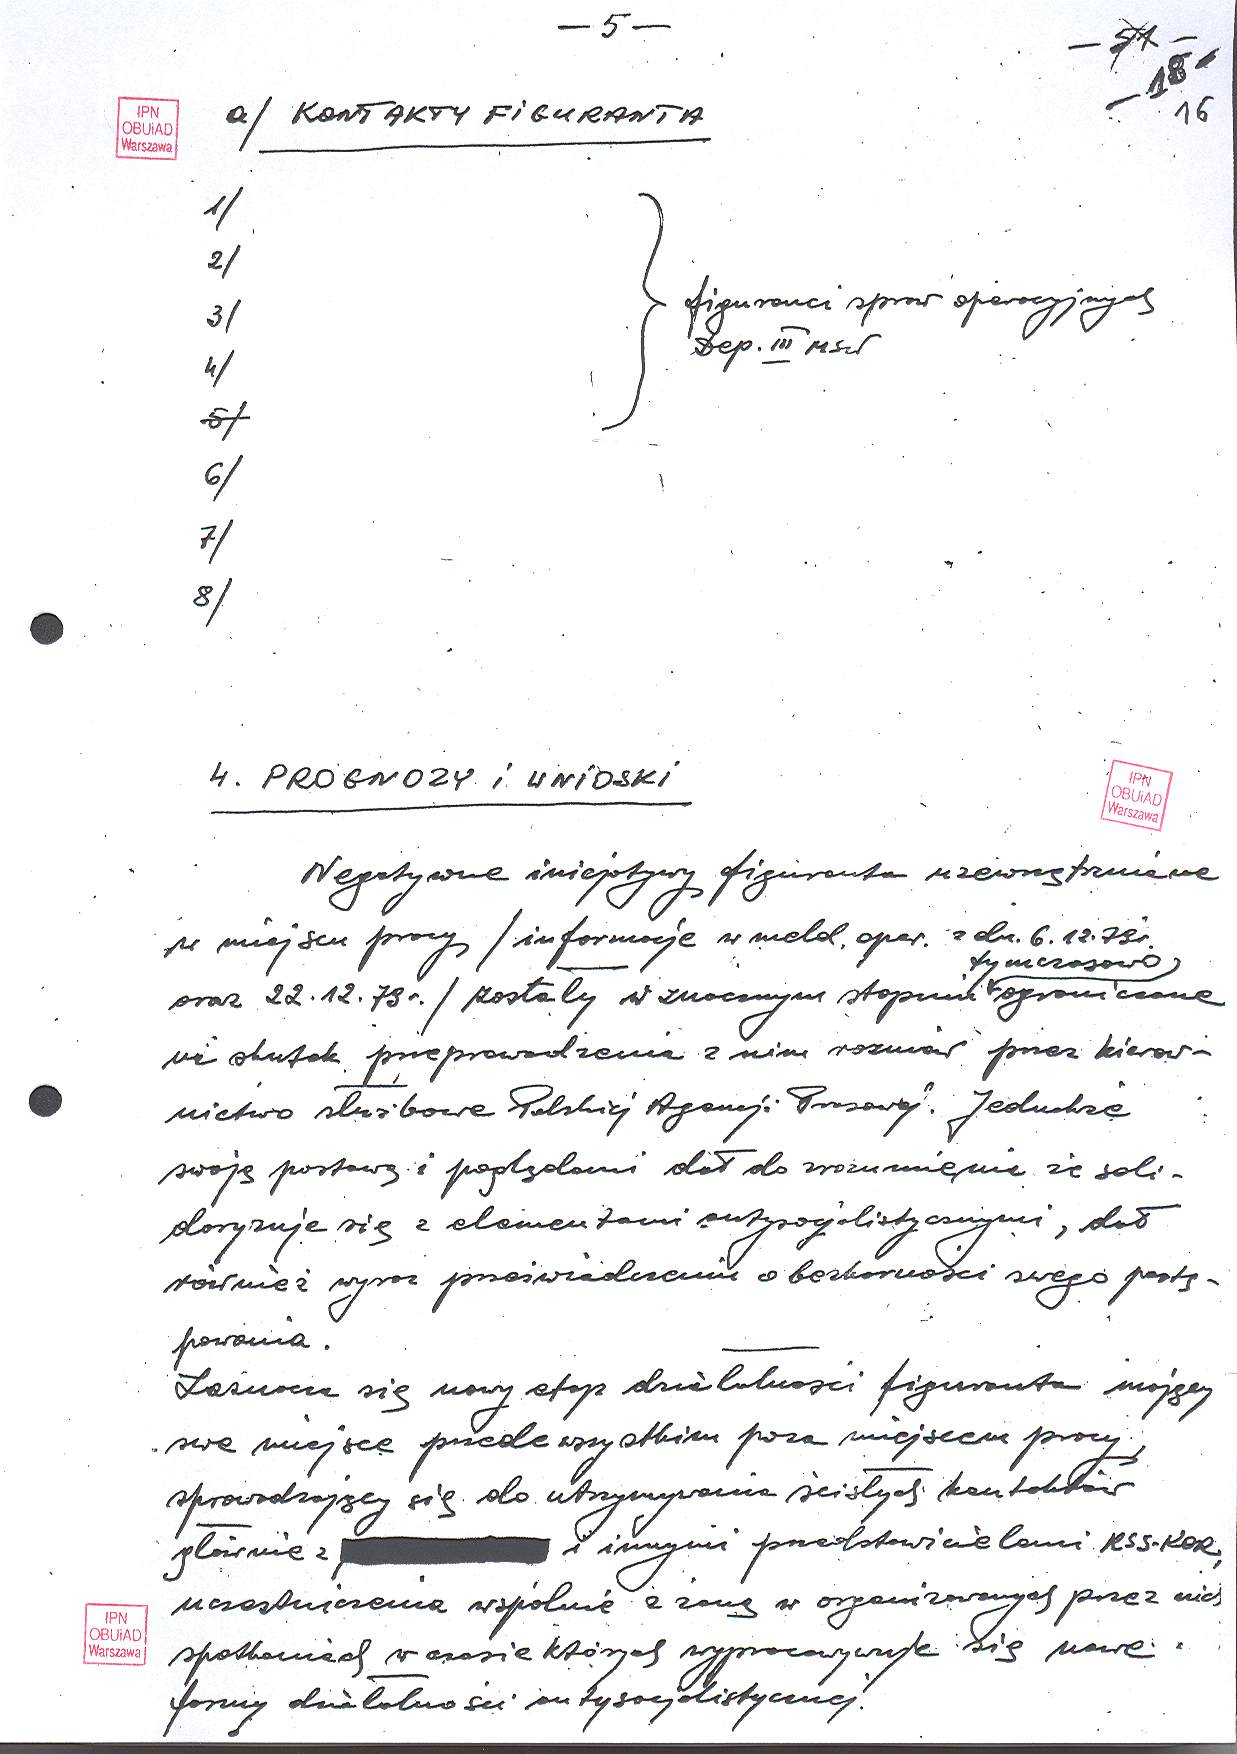 — 5 —
— 51 —
— 18 —
16
IPN
OBUiAD
Warszawa
a/ KONTAKTY FIGURANTA
1/
2/
3/
4/
5/
6/
7/
8/
figuranci spraw operacyjnych
Dep. III MSW
4. PROGNOZY i WNIOSKI
IPN
OBUiAD
Warszawa
Negatywne inicjatywy figuranta uzewnętrzniane
w miejscu pracy /informacje w meld. oper. z dn. 6.12.79r.
tymczasowo
oraz 22.12.79r./ zostały w znacznym stopniu ograniczone
na skutek przeprowadzenia z nim rozmów przez kierow-
nictwo służbowe Polskiej Agencji Prasowej. Jednakże
swoją postawą i poglądami dał do zrozumienia że soli-
daryzuje się z elementami antysocjalistycznymi, dał
również wyraz przeświadczenia o bezkarności swego postę-
powania.
Zaznacza się nowy etap działalności figuranta mający
swe miejsce przede wszystkim poza miejscem pracy,
sprowadzający się do utrzymywania ścisłych kontaktów
głównie z i innymi przedstawicielami KSS-KOR,
uczestniczenia wspólnie z żoną w organizowanych przez nich
spotkaniach w czasie których wypracowywuje się nowe
formy działalności antysocjalistycznej.
IPN
OBUiAD
Warszawa